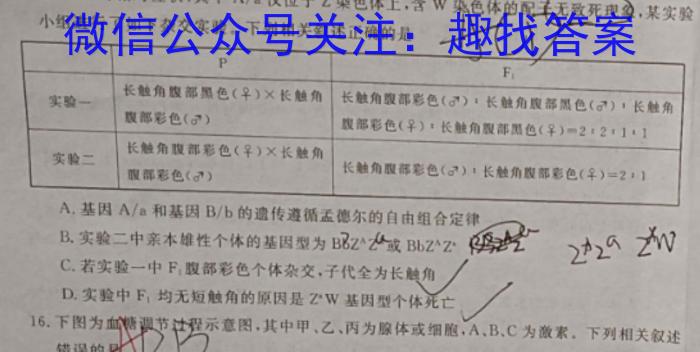 仅位于Z染色体上,含W染色体的配子无致死现象,某实验
小组
微信公众号关注:趣找答案
P F₁
实验一 长触角腹部黑色(♀)×长触角腹部彩色(♂) 长触角腹部彩色(♂):长触角腹部黑色(♂):长触角腹部彩色(♀):长触角腹部黑色(♀)=2:2:1:1
实验二 长触角腹部彩色(♀)×长触角腹部彩色(♂) 长触角腹部彩色(♂):长触角腹部彩色(♀)=2:1
A. 基因 A/a 和基因 B/b 的遗传遵循孟德尔的自由组合定律
B. 实验二中亲本雄性个体的基因型为 BBZᴬZᵃ或 BbZᴬZᵃ
C. 若实验一中 F₁ 腹部彩色个体杂交,子代全为长触角
D. 实验中 F₁ 均无短触角的原因是 ZᵃW 基因型个体死亡
16. 下图为血糖调节过程示意图,其中甲、乙、丙为腺体或细胞,A、B、C 为激素。下列相关叙述
错误的是